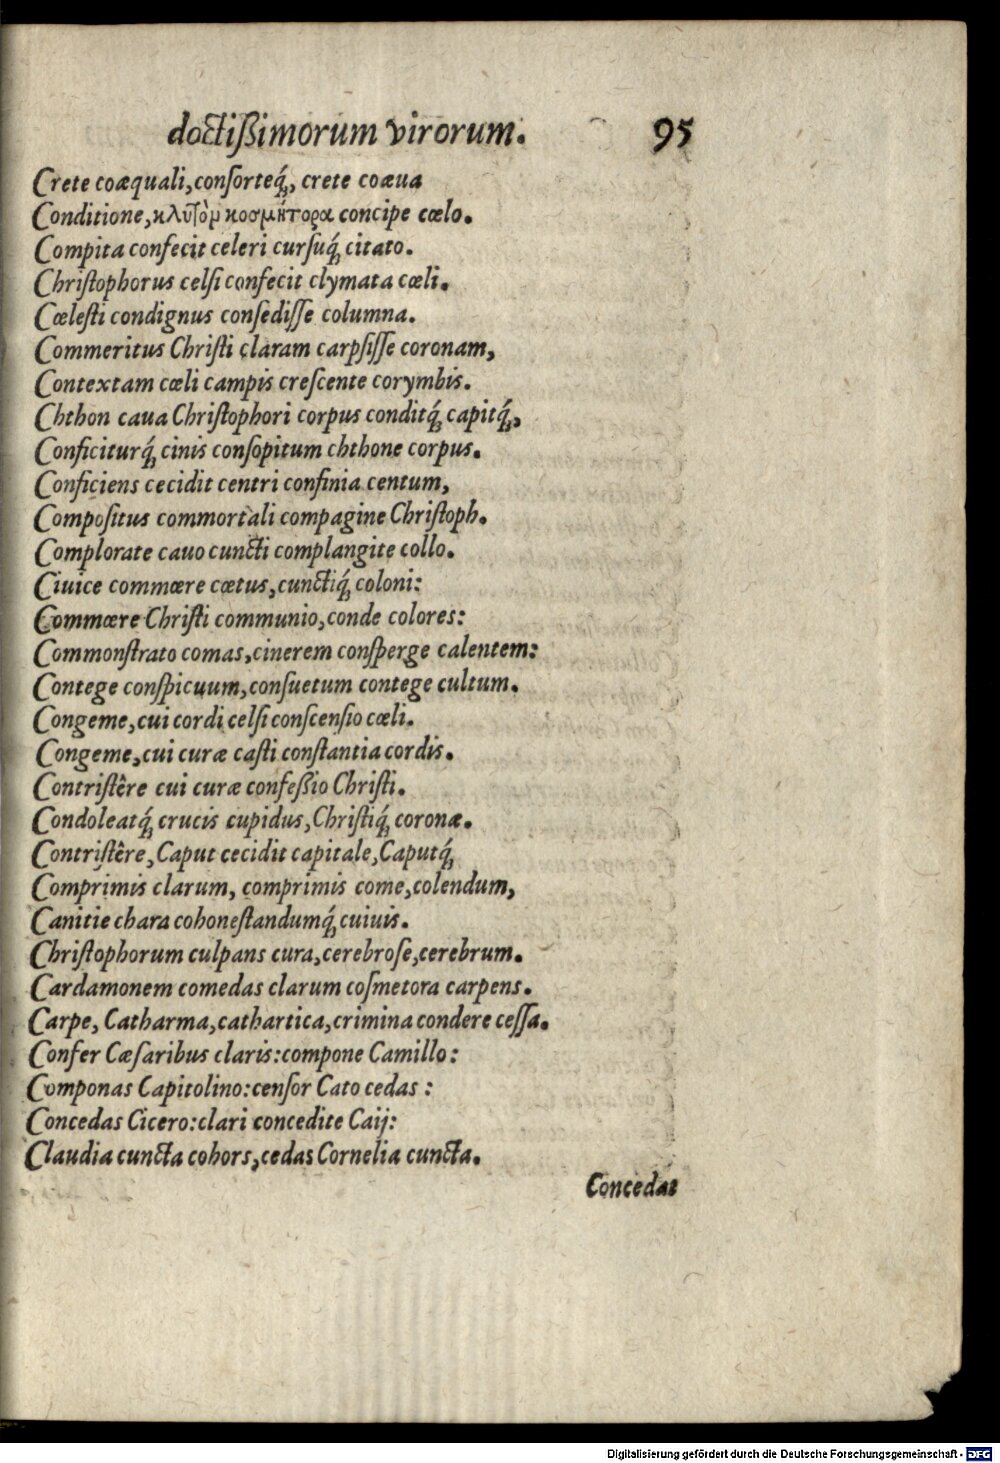 doctißimorum virorum. 95
Crete coæquali, conſorteq́;, crete coæua
Conditione, κλυτὸμ κοσμήτορα concipe cœlo.
Compita confecit celeri curſuq́; citato.
Chriſtophorus celſi confecit clymata cœli.
Cœleſti condignus conſediſſe columna.
Commeritus Chriſti claram carpſiſſe coronam,
Contextam cœli campis creſcente corymbis.
Chthon caua Chriſtophori corpus conditq́; capitq́;,
Conficiturq́; cinis conſopitum chthone corpus.
Conficiens cecidit centri confinia centum,
Compoſitus commortali compagine Chriſtoph.
Complorate cauo cuncti complangite collo.
Ciuice commœre cœtus, cunctiq́; coloni:
Commœre Chriſti communio, conde colores:
Commonſtrato comas, cinerem conſperge calentem:
Contege conſpicuum, conſuetum contege cultum.
Congeme, cui cordi celſi conſcenſio cœli.
Congeme, cui curæ caſti conſtantia cordis.
Contriſtêre cui curæ confeßio Chriſti.
Condoleatq́; crucis cupidus, Chriſtiq́; coronæ.
Contriſtêre, Caput cecidit capitale, Caputq́;
Comprimis clarum, comprimis come, colendum,
Canitie chara cohoneſtandumq́; cuiuis.
Chriſtophorum culpans cura, cerebroſe, cerebrum.
Cardamonem comedas clarum coſmetora carpens.
Carpe, Catharma, cathartica, crimina condere ceſſa.
Confer Cæſaribus claris: compone Camillo:
Componas Capitolino: cenſor Cato cedas:
Concedas Cicero: clari concedite Caij:
Claudia cuncta cohors, cedas Cornelia cuncta.
Concedat
Digitalisierung gefördert durch die Deutsche Forschungsgemeinschaft - DFG